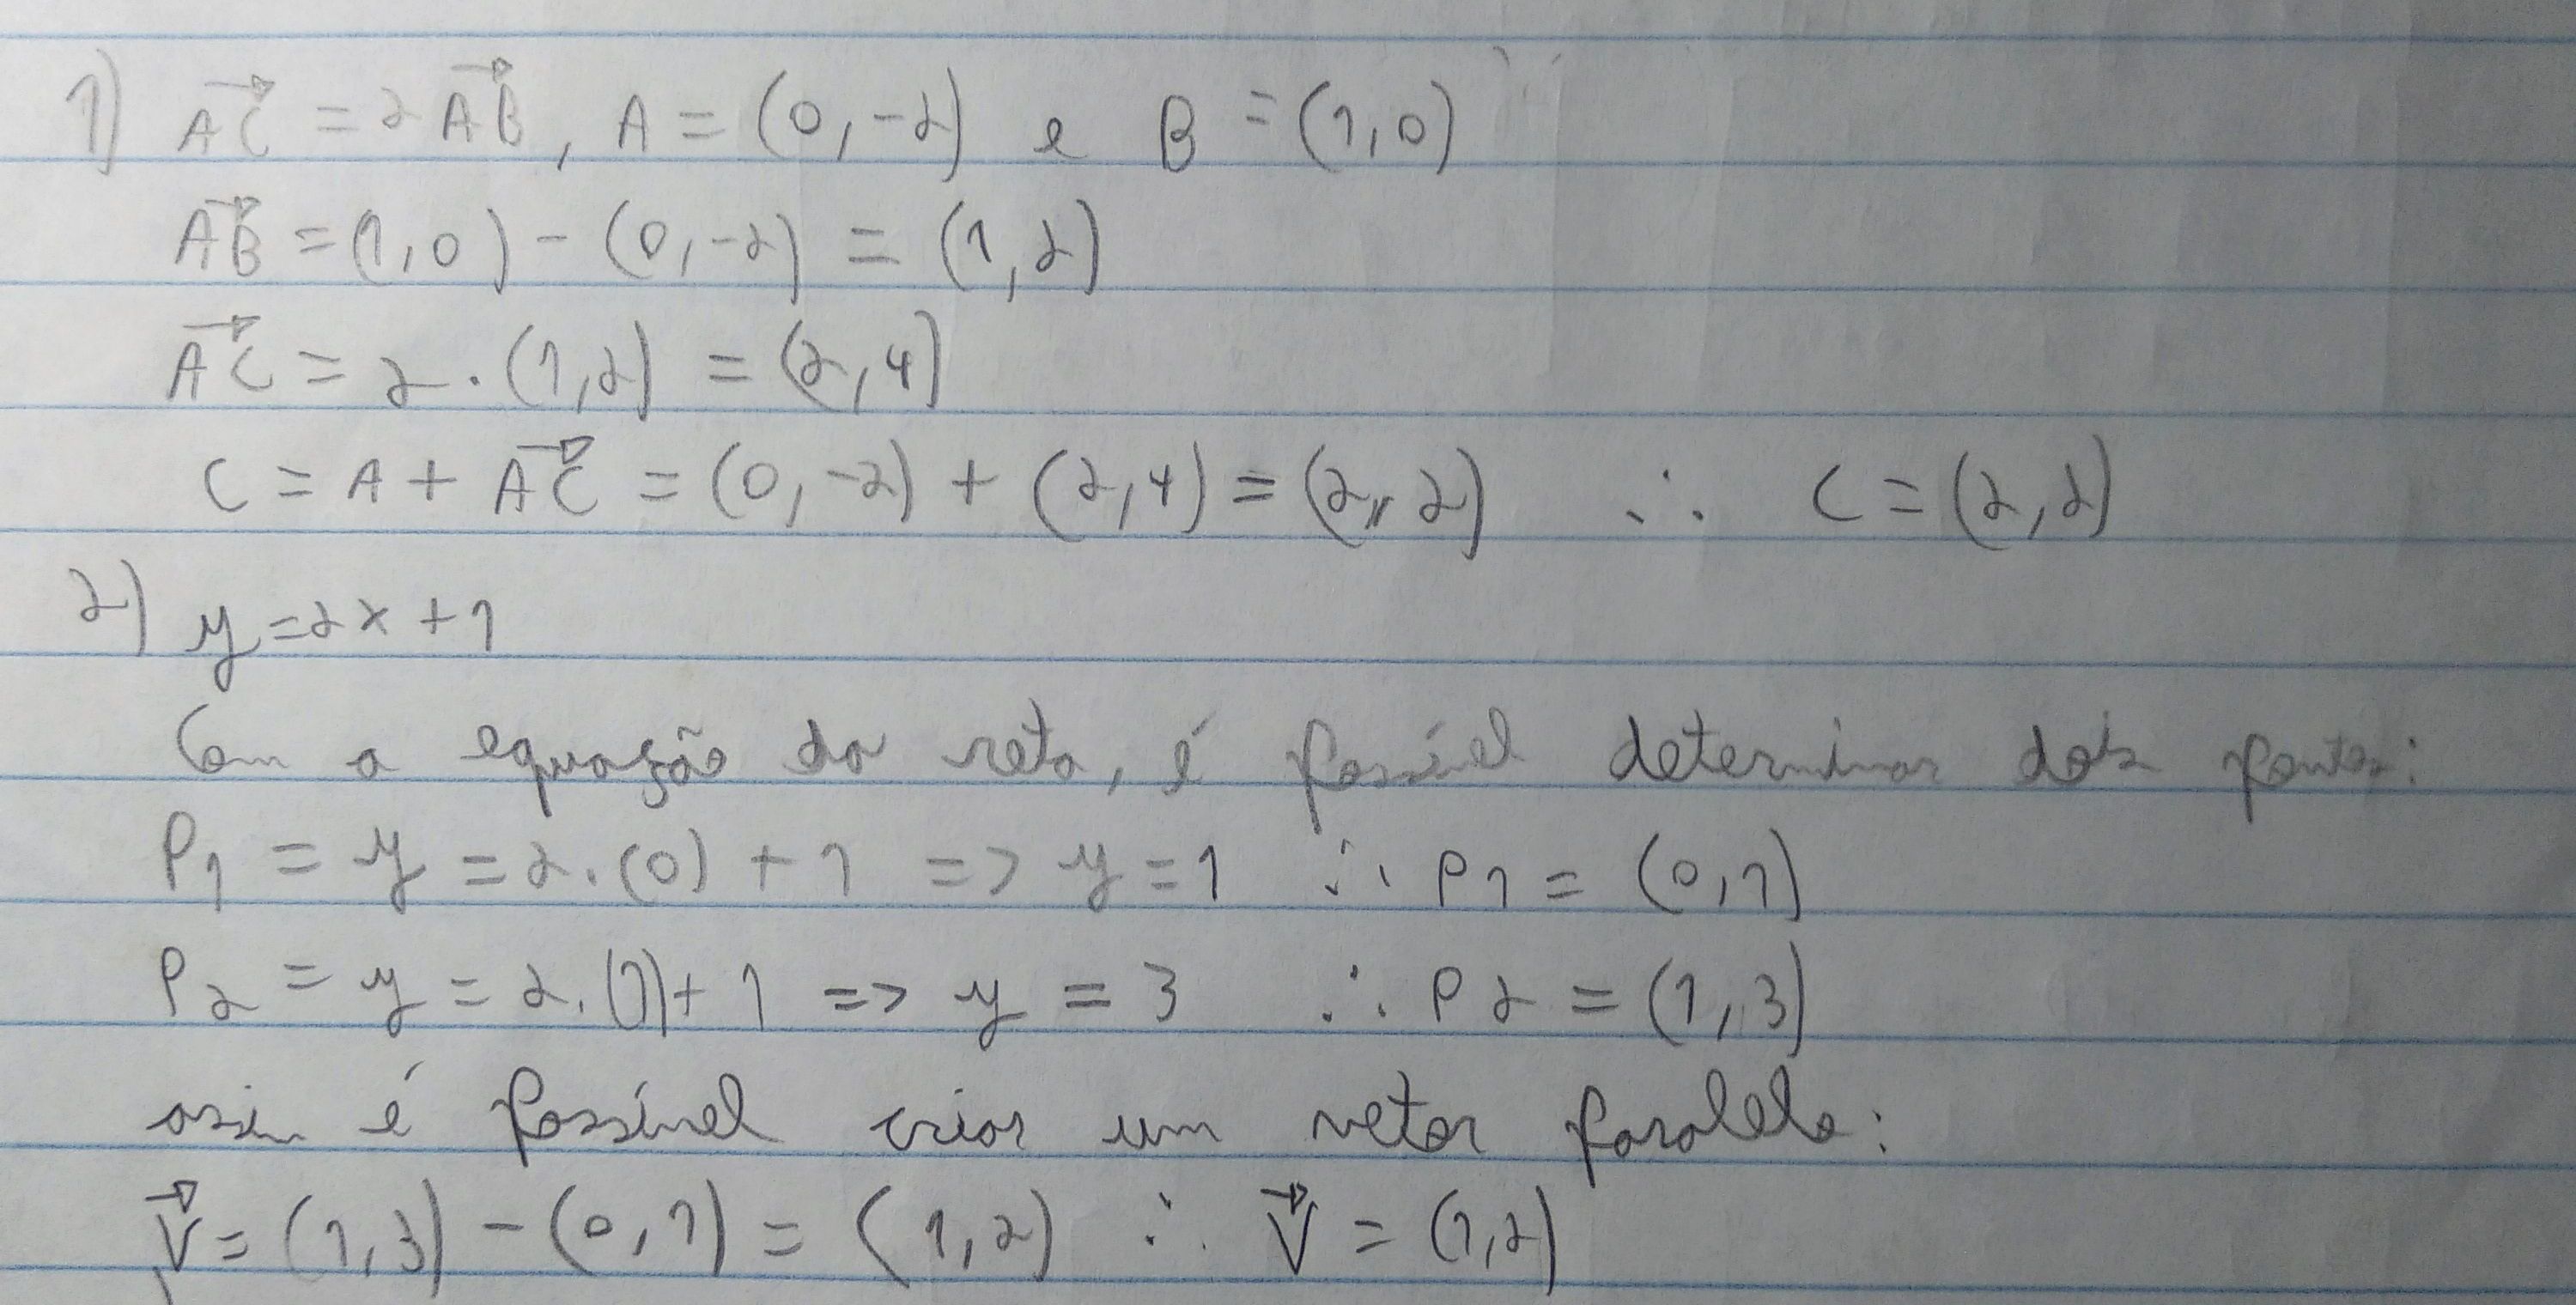 1) AC = 2AB, A = (0,-2) e B = (1,0)
AB = (1,0) - (0,-2) = (1,2)
AC = 2 . (1,2) = (2,4)
C = A + AC = (0,-2) + (2,4) = (2,,2) ∴ C = (2,2)
2) y = 2x + 1
Com a equação da reta, é possível determinar dois pontos:
P1 = y = 2.(0) + 1 => y = 1 ∴ P1 = (0,1)
P2 = y = 2.(1) + 1 => y = 3 ∴ P2 = (1,3)
assim é possível criar um vetor paralelo:
V = (1,3) - (0,1) = (1,2) ∴ V = (1,2)